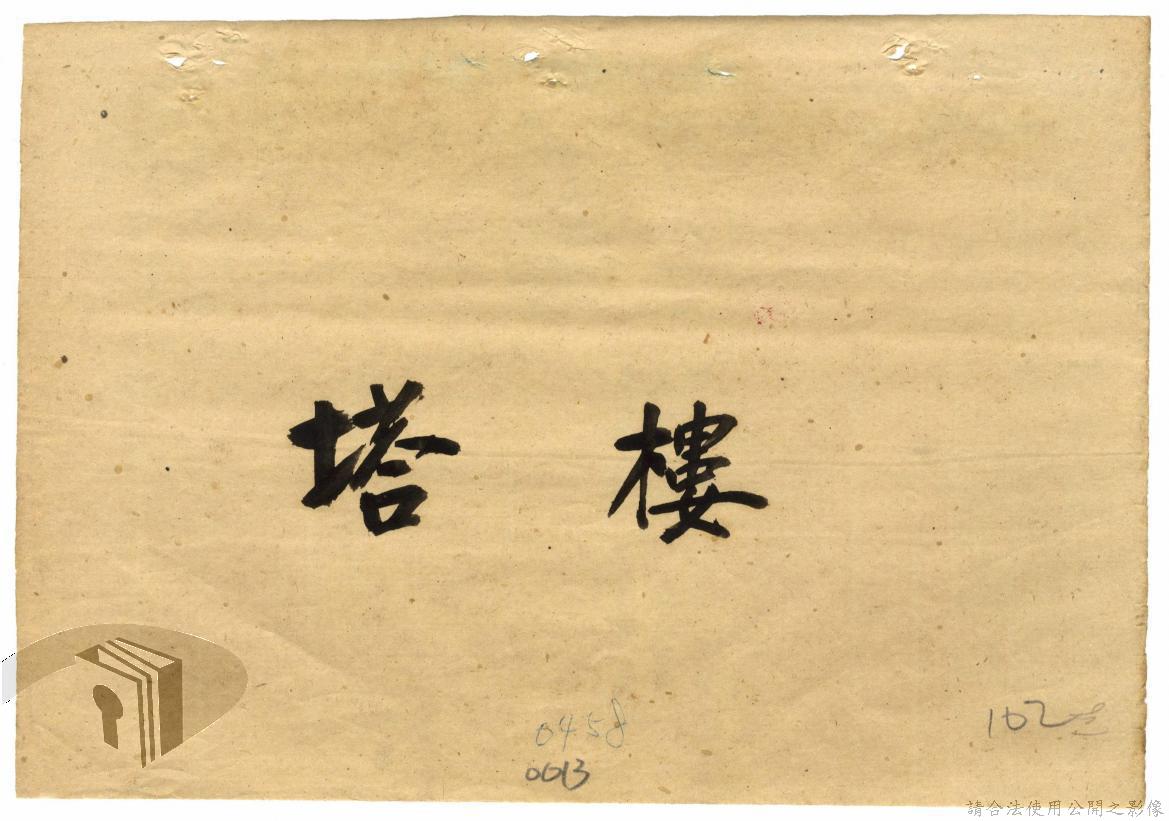 塔樓
0458
0013
102
請合法使用公開之影像